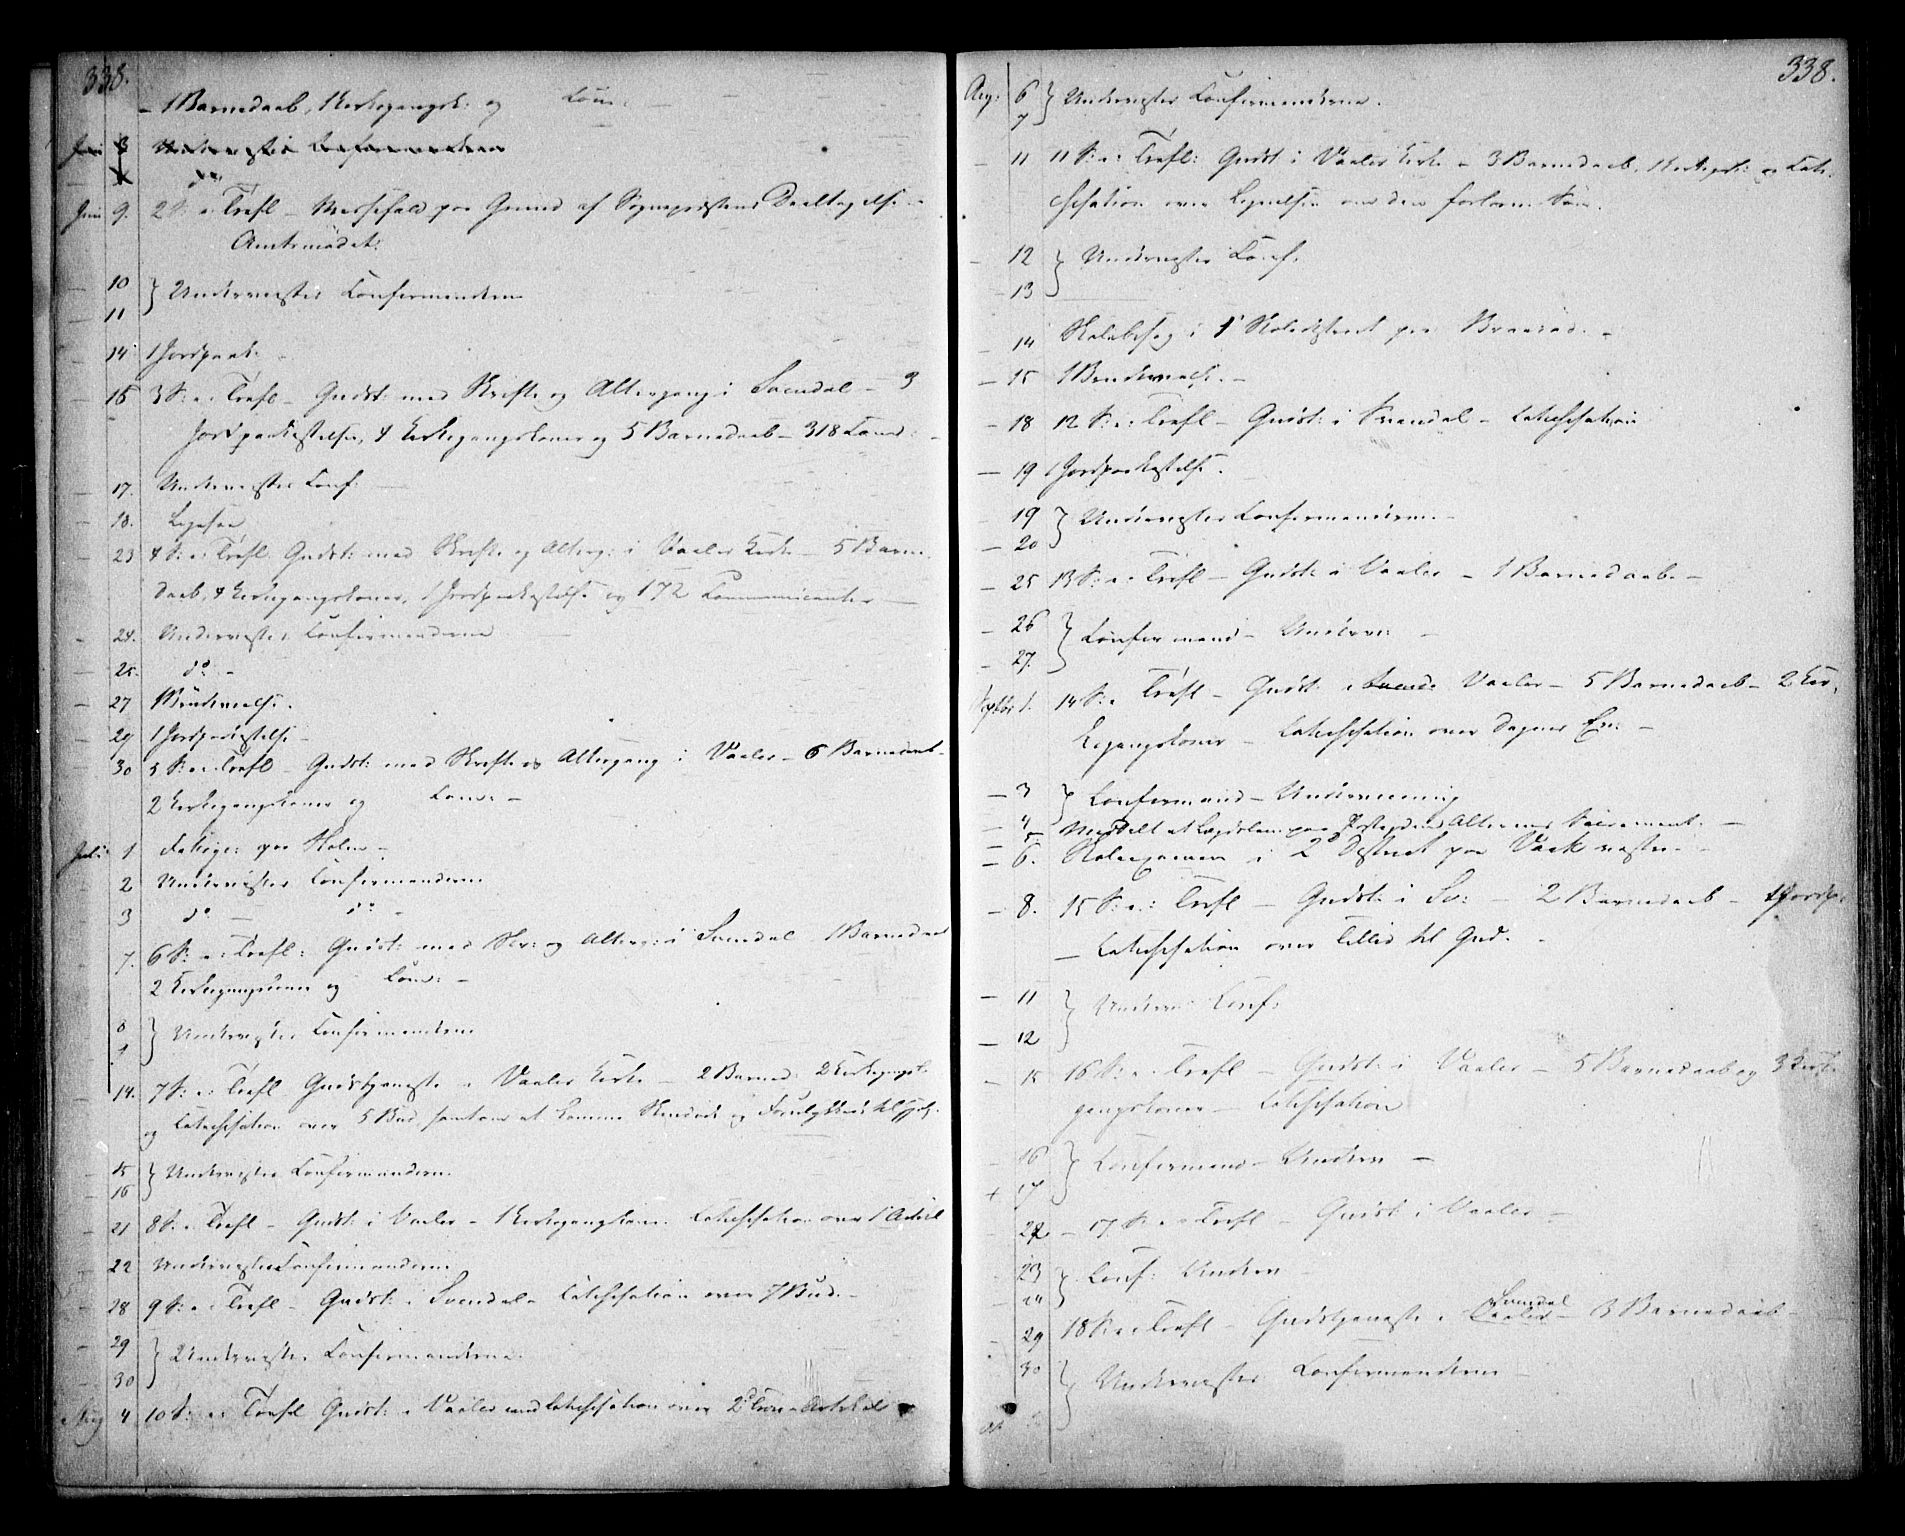 338.
– 1 Barnedaab, 1 Kirkegangsk: og Com:
Juni 3 Underviste Confirmanderne
do
Juni 9. 2 S: e: Trefl – Messefald paa Grund af Sognepræstens Deeltagelse i
Amtsmødet.
10 } Underviste Confirmanderne
11
14 1 Jordpaak:
16 3 S: e: Trefl – Gudst: med Skrifte og Altergang i Svendal – 3
Jordpaakastelser, 4 Kirkegangskoner og 5 Barnedaab – 318 Com:
17. Underviste Conf:
18.
23 4 S: e: Trefl. Gudst: med Skrifte og Alterg: i Vaaler Kirke – 5 Barne
daab, 4 Kirkegangskoner, 1 Jordpaakastelse og 172 Communicanter –
24. Underviste Confirmanderne
25. do –
27 1 Brudevielse.
29 1 Jordpaakastelse –
30 5 S: e: Trefl – Gudst: med Skrifte og Altergang i Vaaler – 6 Barnedaab –
2 Kirkegangskoner og Com: –
Juli 1
2 Underviste Confirmanderne
3 do – do –
7. 6 S: e: Trefl: Gudst: med Skr: og Alterg: i Svendal – 1 Barnedaab
2 Kirkegangskoner og Com: –
8 } Underviste Confirmanderne
9
14. 7 S: e: Trefl Gudstjeneste i Vaaler Kirke – 2 Barned: 2 Kirkegangsk:
og Catechisation over 5 Bud, samt om at komme
15 } Underviste Confirmanderne.
16
21 8 S: e: Trefl – Gudst: i Vaaler – 1 Kirkegangskone. Catechisation over 1 Artikel
22 Underviste Confirmanderne
28 9 S: e: Trefl – Gudst: i Svendal – Catechisation over 7 Bud. –
29 } Underviste Confirmanderne.
30
Aug 4 10 S: e: Trefl Gudst: i Vaaler med Catechisation over 2d Troes Artikel
338.
Aug: 6 } Underviste Confirmanderne.
7
– 11 11 S: e: Trefl: Gudst: i Vaaler Kirke – 3 Barnedaab, 1 Kirkegsk: og Cate-
chisation over Lignelsen om den forlorne Søn.
– 12 } Underviste Conf.
– 13
– 14 Skolebesøg i 1st Skoledistrict paa
– 15 1 Brudevielse. –
– 18 12 S: e: Trefl – Gudst: i Svendal – Catechisation
– 19 1 Jordpaakastelse.
– 19 } Underviste Confirmanderne. –
– 20
– 25 13 S: e: Trefl – Gudst: i Vaaler – 1 Barnedaab. –
– 26 } Confirmand – Underv: –
– 27.
Septbr 1. 14 S: e Trefl – Gudst: i Svend: Vaaler – 5 Barnedaab – 2 Kir-
kegangskoner – Catechisation over Dagens Ev: –
– 3 } Confirmand – Underviisning
– 4
– 5 Meddelt et Lægdslem paa Alterens Sacrament. –
– 6. Skoleexamen i 2d District paa Vaak vestre –
– 8. 15 S: e: Trefl – Gudst: i Sv: – 2 Barnedaab – 1 Jordpa:
– Catechisation over Tillid til Gud. –
– 11 } Underv: Conf:
– 12
– 15 16 S: e: Trefl – Gudst: i Vaaler – 5 Barnedaab og 3 Kirke-
gangskoner – Catechisation
– 16 } Confirmand – Underv –
17
22 – 17 S: e: Trefl – Gudst: i Vaaler –
23 } Conf: Underv –
24
29 18 S: e: Trefl – Gudstjeneste i Vaaler Svendal – 3 Barnedaab –
30 } Underviste Confirmanderne –